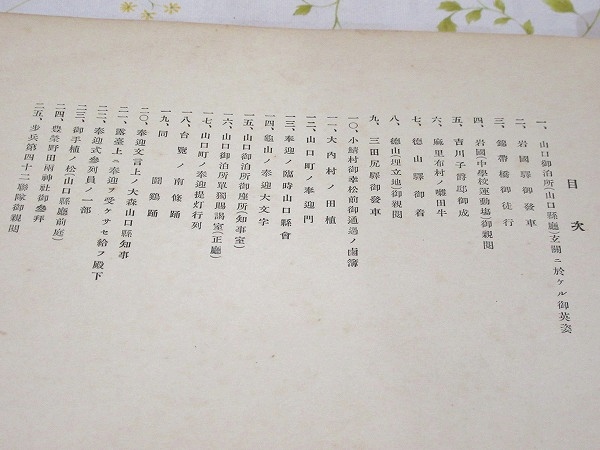 目次
一、山口御泊所(山口縣廳)玄關ニ於ケル御英姿
二、岩國驛御發車
三、錦帶橋御徒行
四、岩國(中學校運動場)御親閲
五、吉川子爵邸御成
六、麻里布村ノ囃田牛
七、德山驛御着
八、德山埋立地御親閲
九、三田尻驛御發車
一〇、小鯖村御幸松前御通過ノ鹵簿
一一、大内村ノ田植
一二、山口町ノ奉迎門
一三、奉迎ノ臨時山口縣會
一四、龜山ノ奉迎大文字
一五、山口御泊所御座所(知事室)
一六、山口御泊所單獨賜謁室(正廳)
一七、山口町ノ奉迎提灯行列
一八、台覽ノ南條踊
一九、同鬪鷄踊
二〇、奉迎文言上ノ大森山口縣知事
二一、露臺上ニ奉迎ヲ受ケサセ給フ殿下
二二、奉迎式參列員ノ一部
二三、御手植ノ松(山口縣廳前庭)
二四、豊榮野田兩神社御參拜
二五、步兵第四十二聯隊御親閲